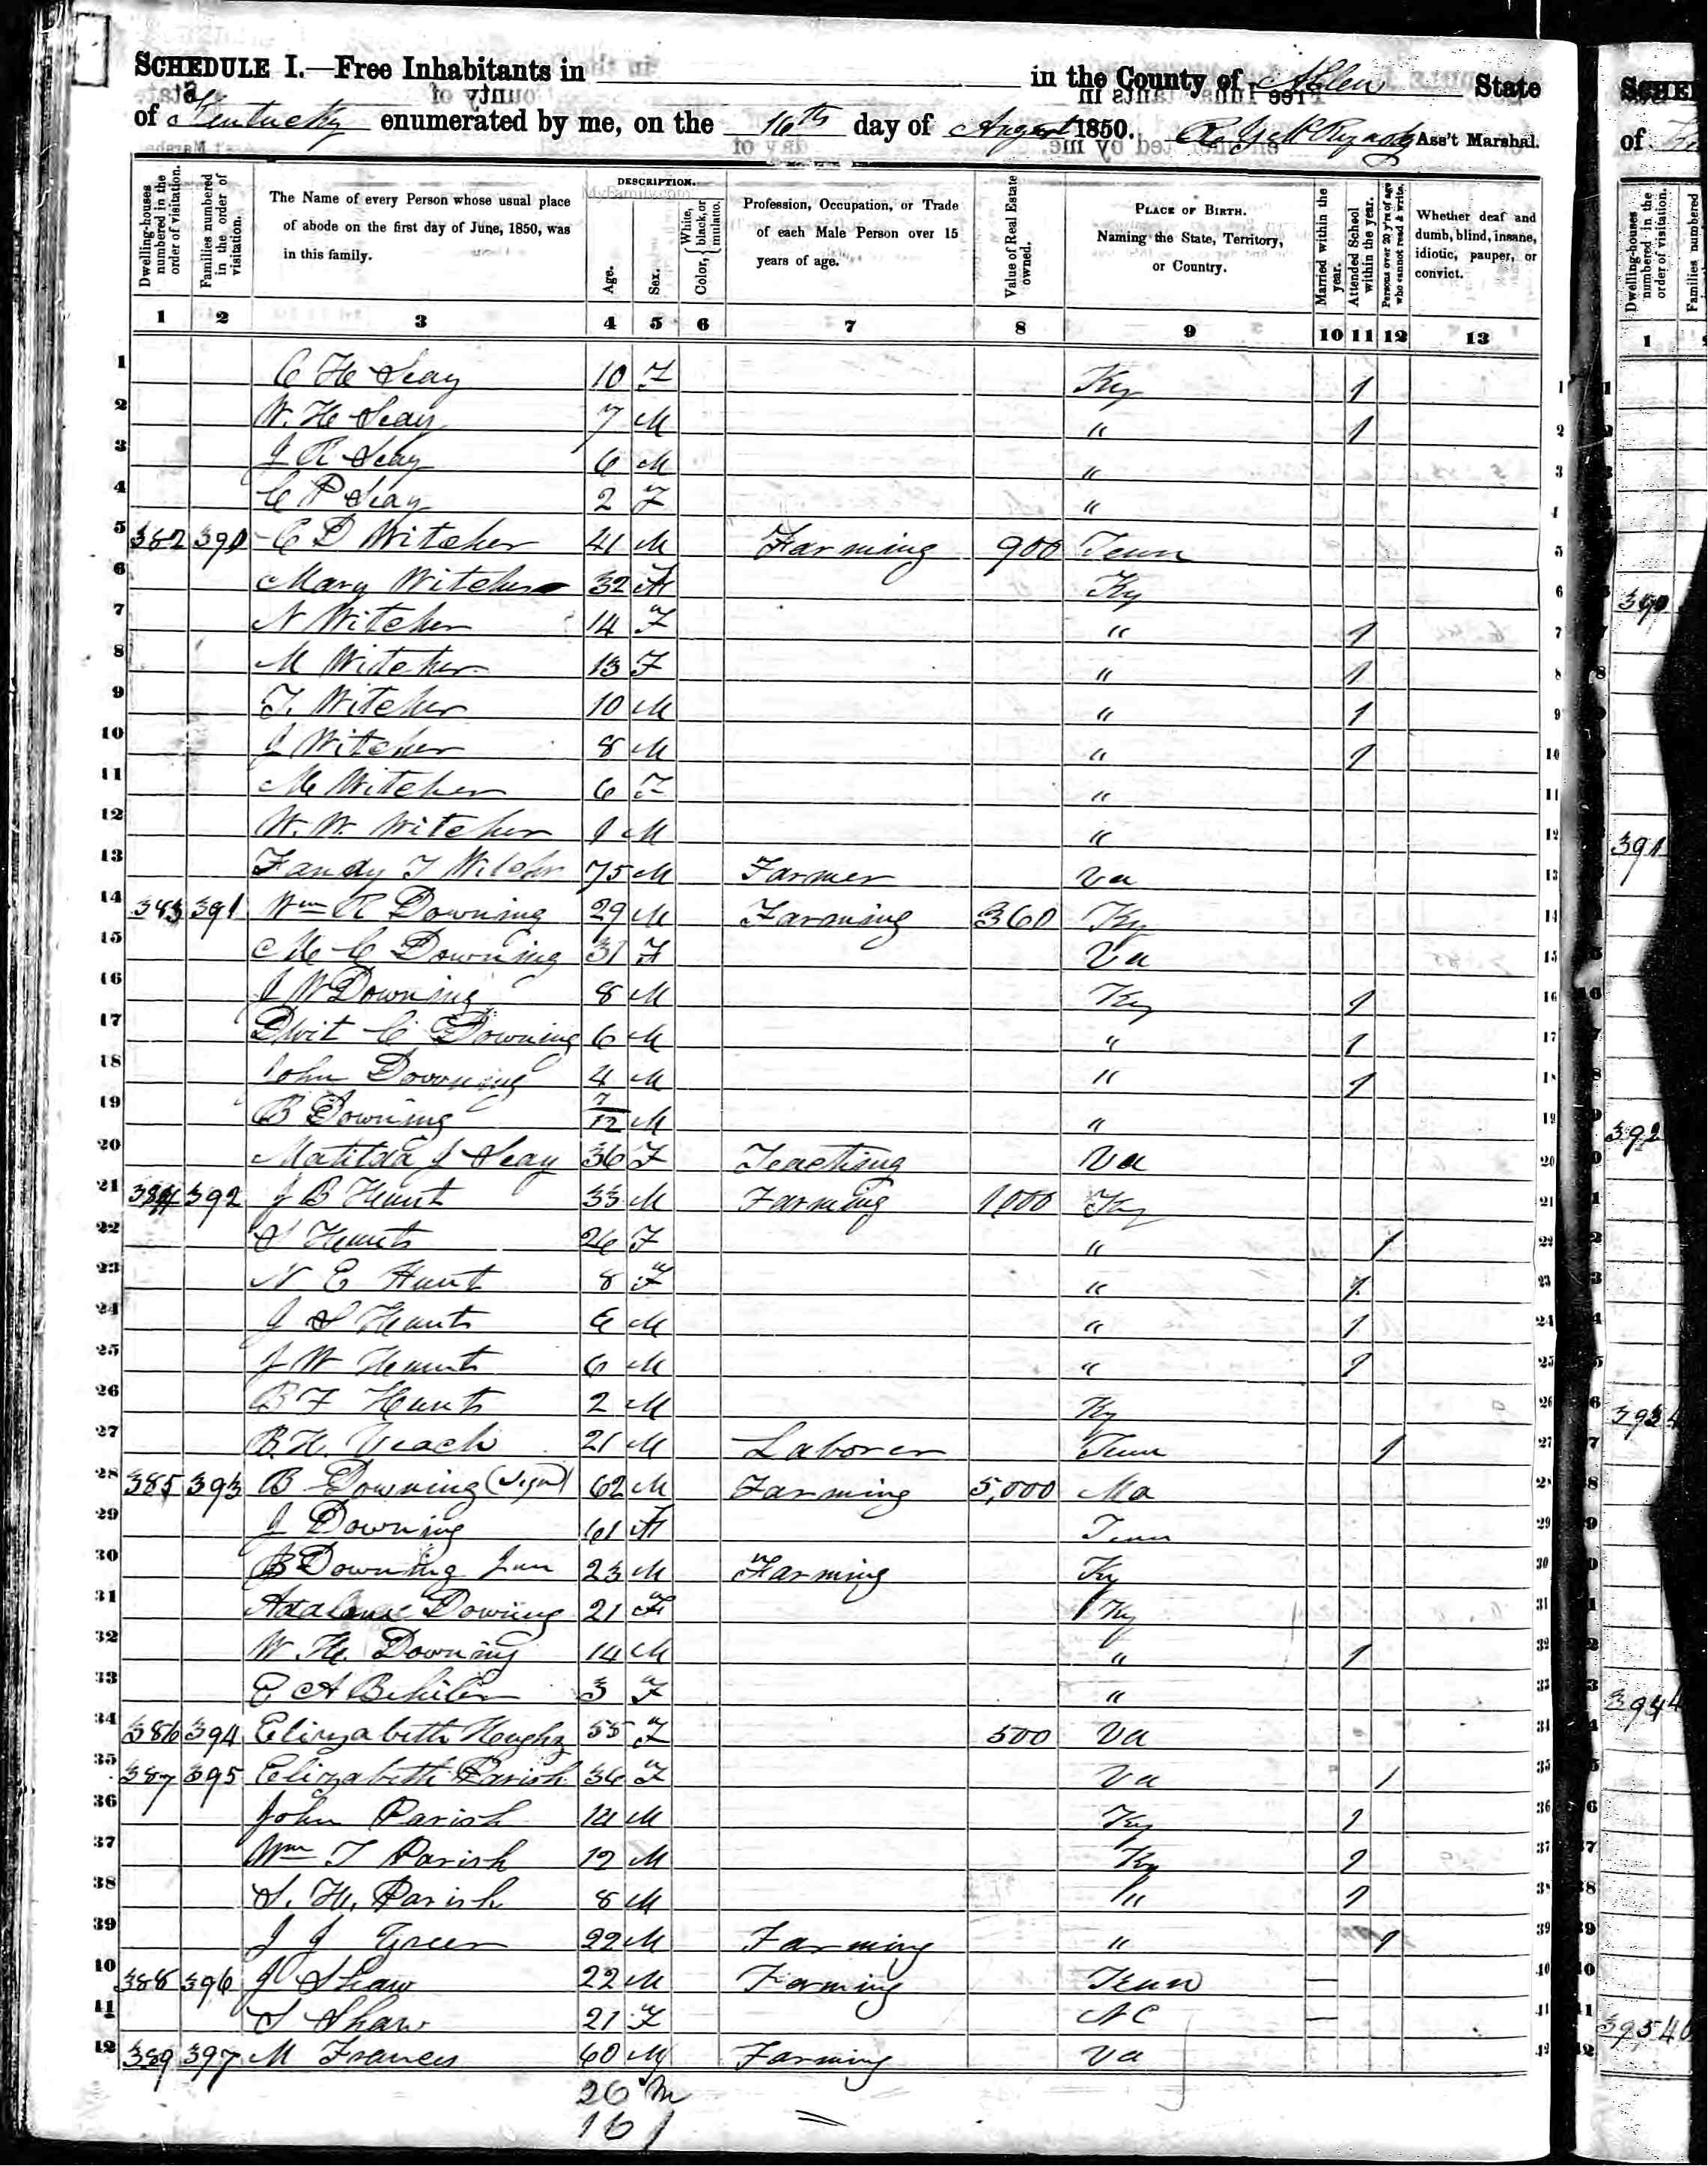 SCHEDULE I.—Free Inhabitants in in the County of Allen State
of Kentucky enumerated by me, on the 16th day of August 1850. Ass't Marshal.
Dwelling-houses numbered in the order of visitation.
Families numbered in the order of visitation.
The Name of every Person whose usual place of abode on the first day of June, 1850, was in this family.
DESCRIPTION.
Age.
Sex.
Color, { White, black, or mulatto.
Profession, Occupation, or Trade of each Male Person over 15 years of age.
Value of Real Estate owned.
PLACE OF BIRTH. Naming the State, Territory, or Country.
Married within the year.
Attended School within the year.
Persons over 20 y'rs of age who cannot read & write.
Whether deaf and dumb, blind, insane, idiotic, pauper, or convict.
1 2 3 4 5 6 7 8 9 10 11 12 13
1 C H Seay 10 F Ky 1 1
2 W. H Seay 7 M " 1 2
3 J R Seay 6 M " 3
4 C P Seay 2 F " 4
5 382 390 C D Witcher 41 M Farming 900 Tenn 5
6 Mary Witcher 32 F Ky 6
7 N Witcher 14 F " 1 7
8 M Witcher 13 F " 1 8
9 T. Witcher 10 M " 1 9
10 J Witcher 8 M " 1 10
11 M Witcher 6 F " 11
12 W. W. Witcher 1 M " 12
13 Tandy T Witcher 75 M Farmer Va 13
14 383 391 Wm R Downing 29 M Farming 360 Ky 14
15 M C Downing 31 F Va 15
16 J W Downing 8 M Ky 1 16
17 Dwit C Downing 6 M " 1 17
18 John Downing 4 M " 1 18
19 B Downing 7/12 M " 19
20 Matilda J Seay 36 F Teaching Va 20
21 384 392 J B Hunt 33 M Farming 1000 Ky 21
22 S Hunt 26 F " 1 22
23 N E Hunt 8 F " 1 23
24 J S Hunt 6 M " 1 24
25 J W Hunt 6 M " 1 25
26 B F Hunt 2 M Ky 26
27 B. H. Veach 21 M Laborer Tenn 1 27
28 385 393 B Downing 62 M Farming 5,000 Ma 28
29 J Downing 61 F Tenn 29
30 B Downing Jun 23 M Farming Ky 30
31 Downing 21 F Ky 31
32 W. H. Downing 14 M " 1 32
33 E A 3 F " 33
34 386 394 Elizabeth Hughz 55 F 500 Va 34
35 387 395 Elizabeth Parish 36 F Va 1 35
36 John Parish 14 M Ky 1 36
37 Wm T Parish 12 M Ky 1 37
38 S. H. Parish 8 M " 1 38
39 J J Green 22 M Farming " 1 39
40 388 396 J Shaw 22 M Farming Tenn — 40
41 S Shaw 21 F NC — 41
42 389 397 M Frances 60 M Farming Va 42
26 M
16 f
SCHE
of
Dwelling-houses numbered in the order of visitation.
Families numbered
1
390
391
392
393
394
395